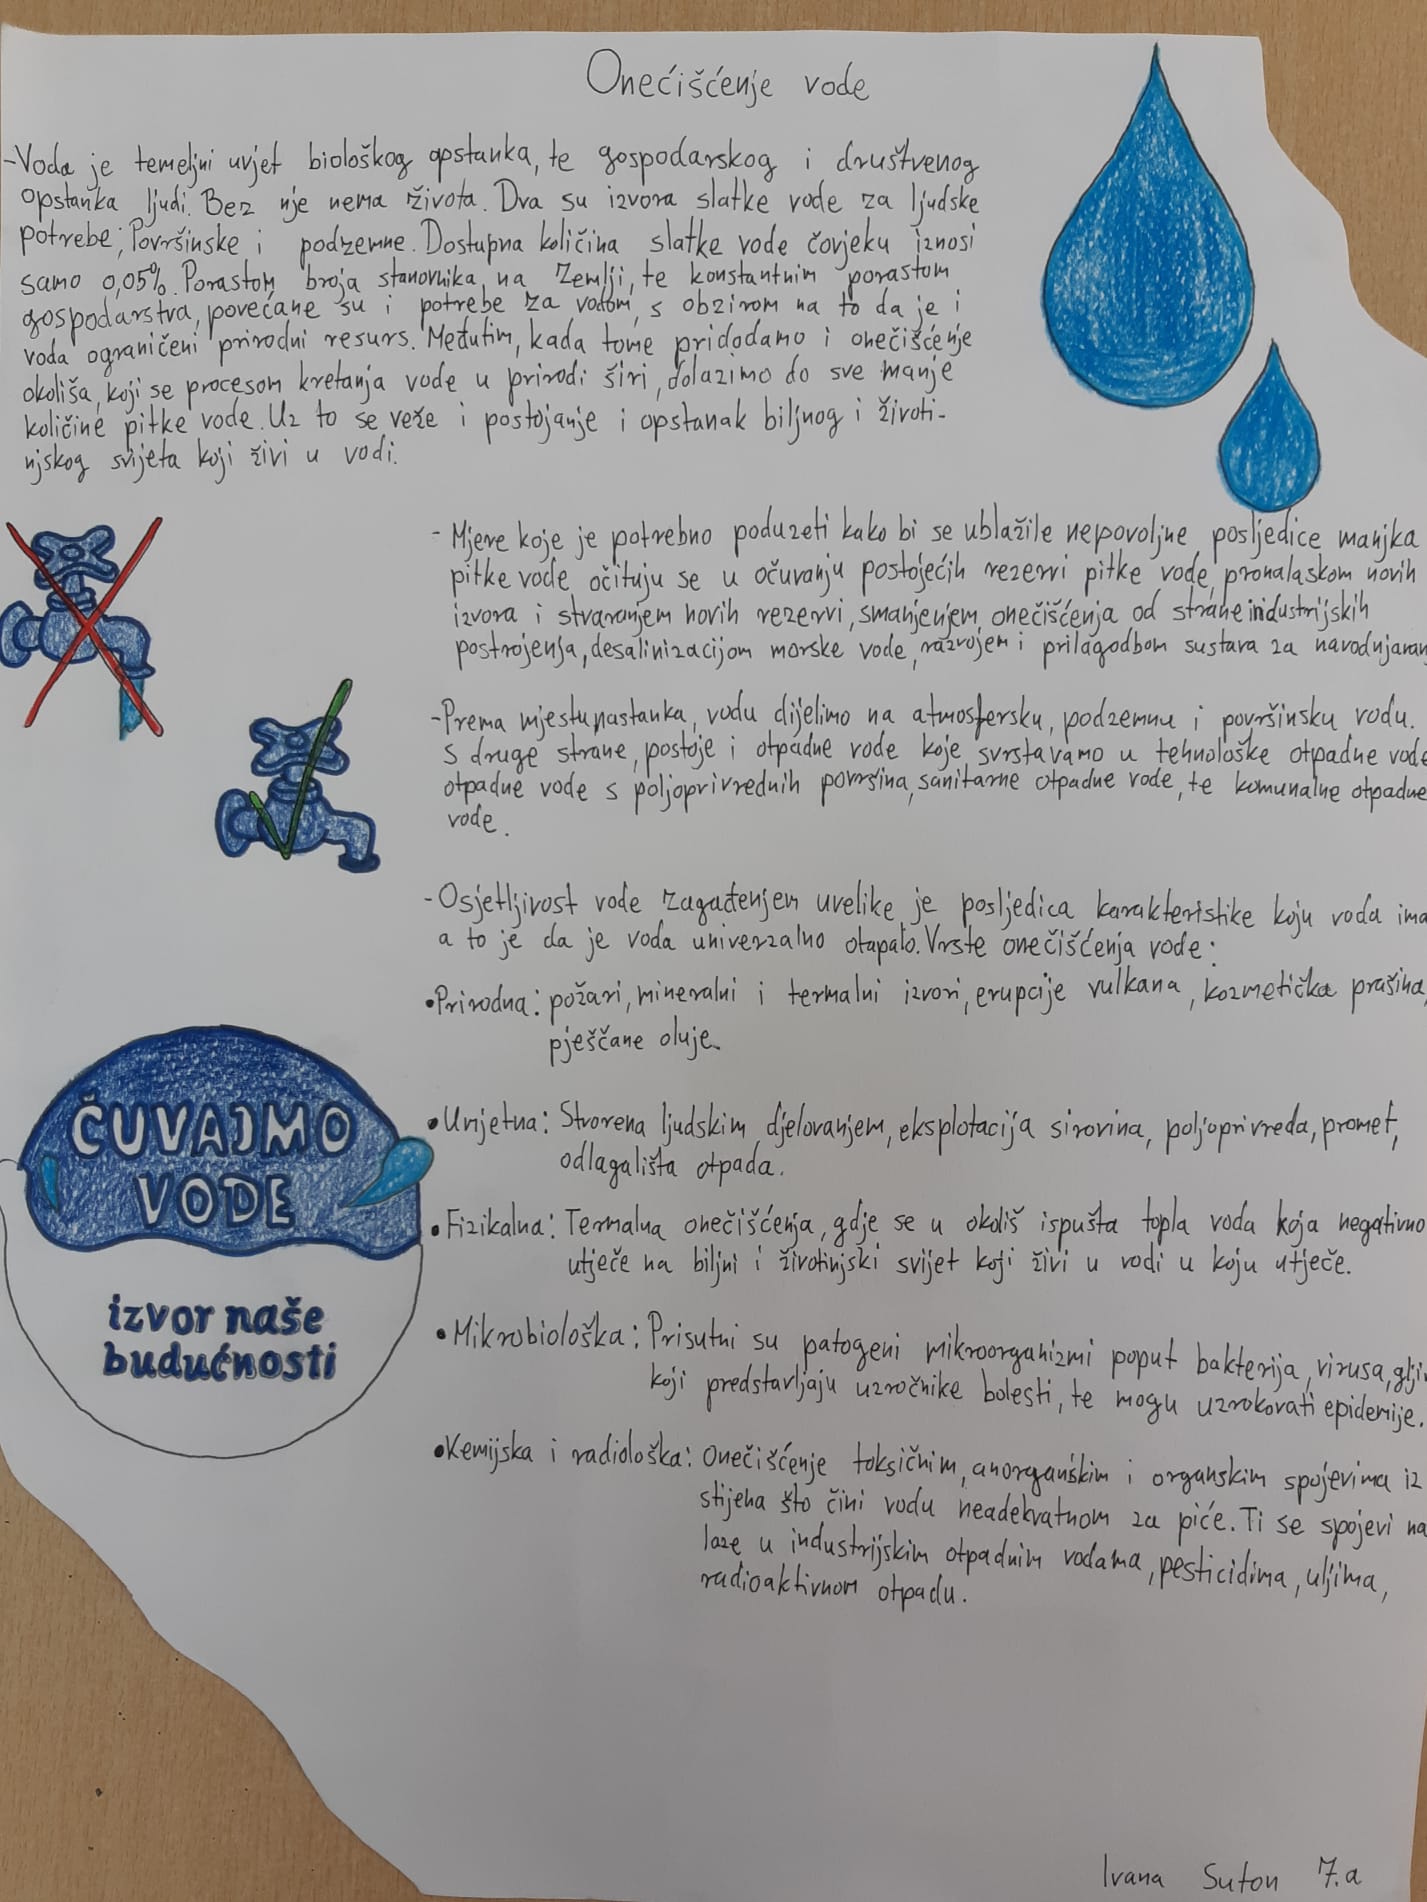 Onečišćenje vode
-Voda je temeljni uvjet biološkog opstanka, te gospodarskog i društvenog
opstanka ljudi. Bez nje nema života. Dva su izvora slatke vode za ljudske
potrebe; Površinske i podzemne. Dostupna količina slatke vode čovjeku iznosi
samo 0,05%. Porastom broja stanovnika, na Zemlji, te konstantnim porastom
gospodarstva, povećane su i potrebe za vodom, s obzirom na to da je i
voda ograničeni prirodni resurs. Međutim, kada tome pridodamo i onečišćenje
okoliša, koji se procesom kretanja vode u prirodi širi, dolazimo do sve manje
količine pitke vode. Uz to se veže i postojanje i opstanak biljnog i životi-
njskog svijeta koji živi u vodi.
- Mjere koje je potrebno poduzeti kako bi se ublažile nepovoljne posljedice manjka
pitke vode očituju se u očuvanju postojećih rezervi pitke vode, pronalaskom novih
izvora i stvaranjem novih rezervi, smanjenjem onečišćenja od strane industrijskih
postrojenja, desalinizacijom morske vode, razvojem i prilagodbom sustava za navodnjavan
-Prema mjestu nastanka, vodu dijelimo na atmosfersku, podzemnu i površinsku vodu.
S druge strane, postoje i otpadne vode koje svrstavamo u tehnološke otpadne vode
otpadne vode s poljoprivrednih površina, sanitarne otpadne vode, te komunalne otpadne
vode.
-Osjetljivost vode zagađenjem uvelike je posljedica karakteristike koju voda ima
a to je da je voda univerzalno otapalo. Vrste onečišćenja vode:
•Prirodna: požari, mineralni i termalni izvori, erupcije vulkana, kozmetička prašina,
pješčane oluje.
•Uvjetna: Stvorena ljudskim djelovanjem, eksplotacija sirovina, poljoprivreda, promet,
odlagališta otpada.
•Fizikalna: Termalna onečišćenja, gdje se u okoliš ispušta topla voda koja negativno
utječe na biljni i životinjski svijet koji živi u vodi u koju utječe.
•Mikrobiološka: Prisutni su patogeni mikroorganizmi poput bakterija, virusa, gljiv
koji predstavljaju uzročnike bolesti, te mogu uzrokovati epidemije.
•Kemijska i radiološka: Onečišćenje toksičnim, anorganskim i organskim spojevima iz
stijena što čini vodu neadekvatnom za piće. Ti se spojevi na
laze u industrijskim otpadnim vodama, pesticidima, uljima,
radioaktivnom otpadu.
ČUVAJMO
VODE
izvor naše
budućnosti
Ivana Suton 7.a